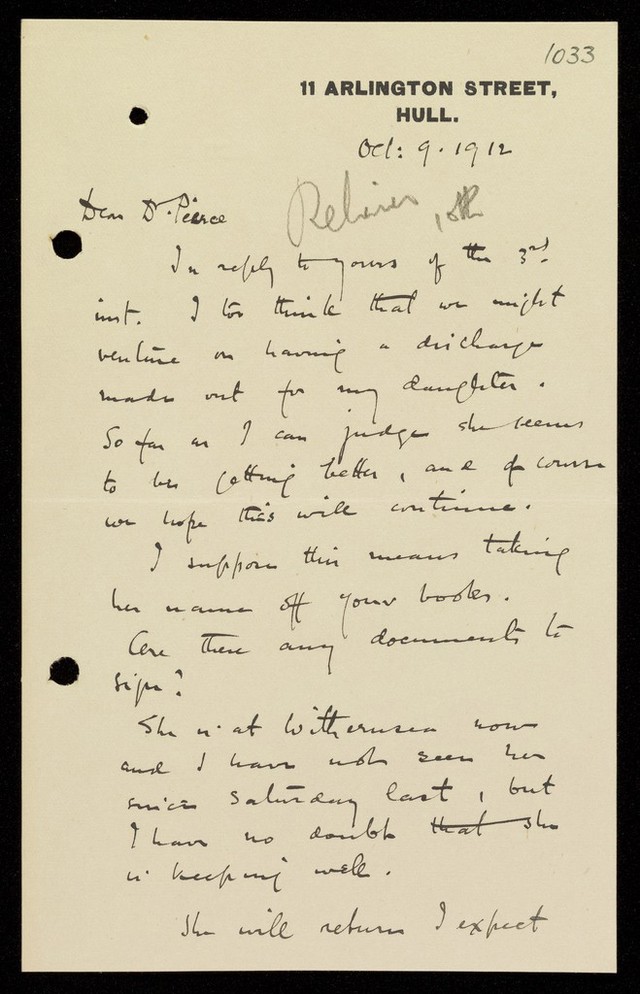 1033
11 ARLINGTON STREET,
HULL.
Oct: 9. 1912
Dear Dr. Pierce
In reply to yours of the 3rd.
inst. I too think that we might
venture on having a discharge
made out for my daughter.
So far as I can judge she seems
to be getting better, and of course
we hope this will continue.
I suppose this means taking
her name off your books.
Are there any documents to
sign?
She is at Withernsea now
and I have not seen her
since Saturday last, but
I have no doubt that she
is keeping well.
She will return I expect